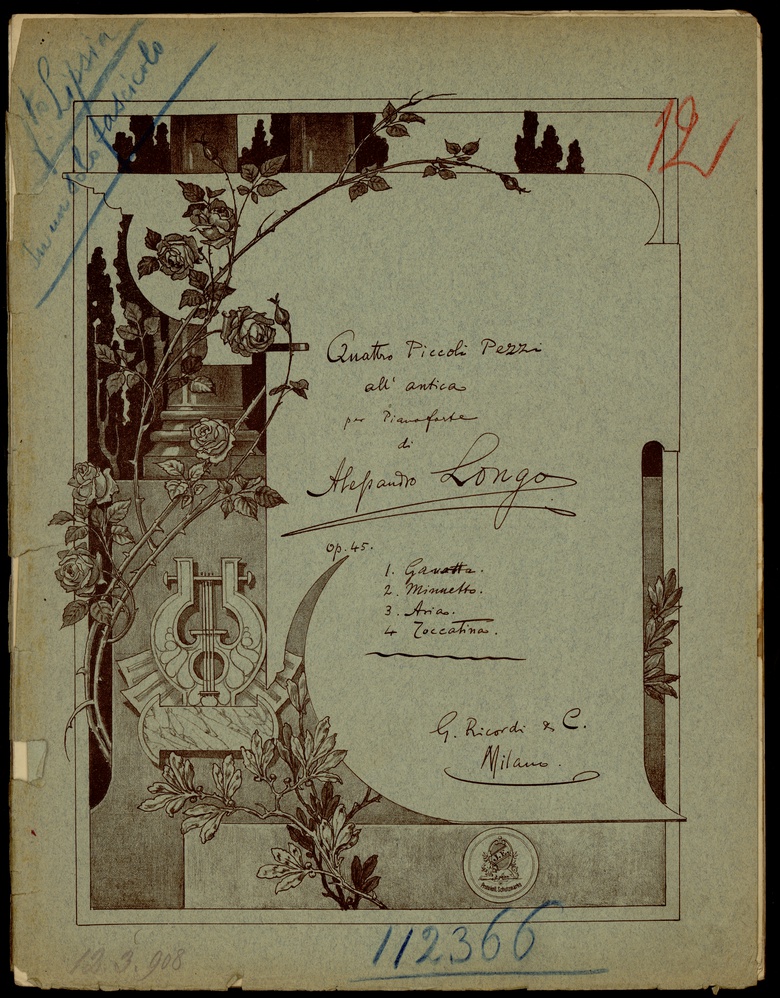 Lipsia
In un solo fascicolo
12
Quattro Piccoli Pezzi
all' antica
per Pianoforte
di
Alessandro Longo
Op. 45.
1. Gavotta.
2. Minuetto.
3. Aria.
4 Toccatina.
G. Ricordi & C.
Milano.
Schutzmarke
112366
12.3.908